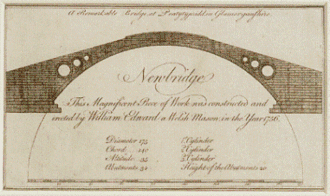 A Remarkable Bridge at Pontypridd in Glamorganshire.
Newbridge
This Magnificent Piece of Work was constructed and
erected by William Edward a Welsh Mason, in the Year 1756.
Diameter 175 1. Cylinder
Chord 140 2. Cylinder
Altitude 35 3. Cylinder
Abutments Height of the Abutments